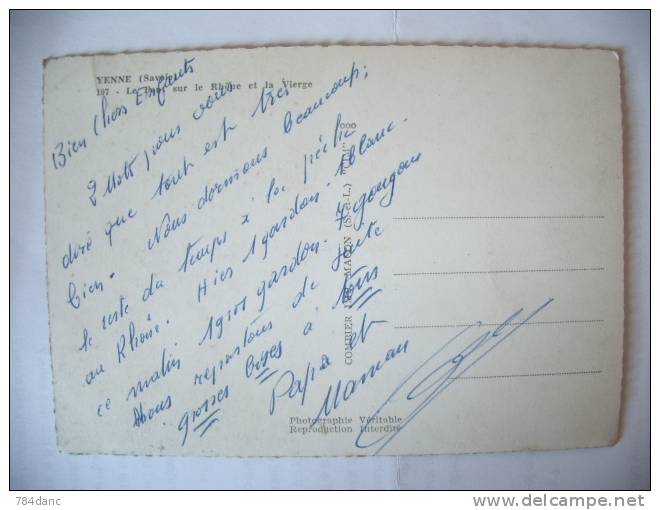 YENNE (Savoie)
107 - Le Pont sur le Rhône et la Vierge
Bien Chers Enfants
2 Mots pour vous
dire que tout est très
bien. Nous dormons beaucoup;
le reste du temps à la pêche
au Rhône. Hier 1 gardon. 1 blanc.
ce matin 1 gardon. 7 goujons
Nous repartons de suite
grosses bises à tous
Papa et
Maman
COMBIER IMP. MACON (S.-et-L.) "CIM"
Photographie Véritable
Reproduction Interdite
784danc
delcampe.net